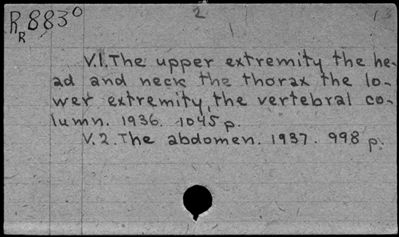 R8830 2 13
R
V.1. The upper extremity the he-
ad and neck the thorax the lo-
wer extremity, the vertebral co-
lumn. 1936. 1045 p.
V.2. The abdomen. 1937. 998 p.